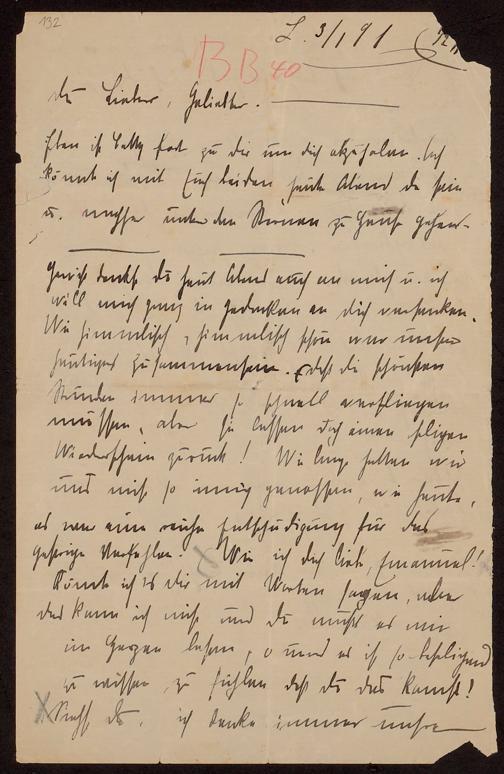 132
L. 3/1 91
BB 40
du Lieber, Geliebter.
Eben ist Betty fort zu dir um dich abzuholen. Ach
könnte ich mit Euch beiden heute Abend da sein
u. nachher unter den Sternen zu Hause gehen.
Gewiss denkst du heut Abend auch an mich u. ich
will mich ganz in Gedanken an dich versenken.
Wie himmlisch, himmlisch schön war unser
heutiges Zusammensein. daß die schönsten
Stunden immer so schnell verfliegen
müssen, aber sie lassen doch einen seligen
Wiederschein zurück! Wie lange hatten wir
uns nicht so innig genossen, wie heute,
es war eine reiche Entschädigung für das
gestrige Verfehlen! Wie ich dich liebe, Emanuel!
Könnte ich es dir mit Worten sagen, aber
das kann ich nicht und du mußt es mir
im Herzen lesen, o und es ist so beseligend
zu wissen, zu fühlen daß du das kannst!
Siehst du, ich denke immer unsre